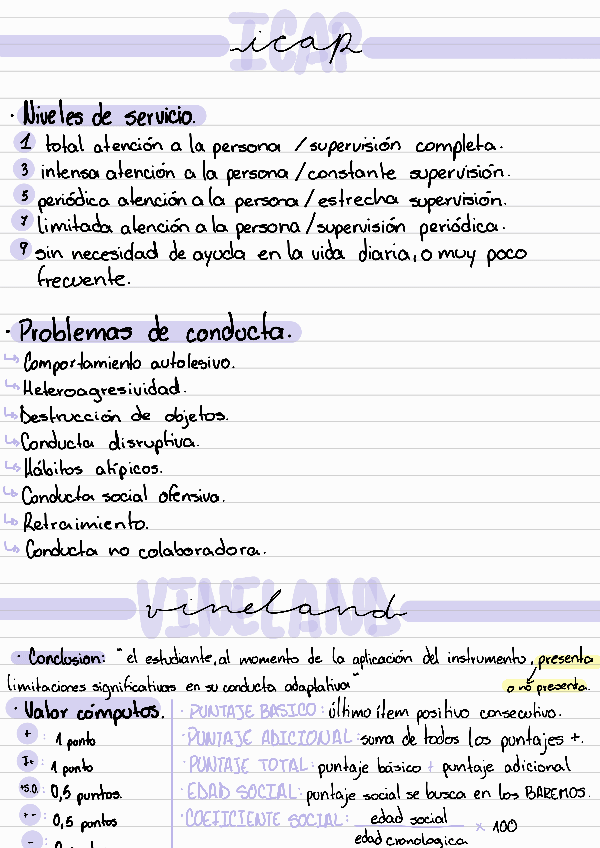 ICAP
icap
· Niveles de servicio.
1 total atención a la persona / supervisión completa.
3 intensa atención a la persona / constante supervisión.
5 periódica atención a la persona / estrecha supervisión.
7 limitada atención a la persona / supervisión periódica.
9 sin necesidad de ayuda en la vida diaria, o muy poco
frecuente.
· Problemas de conducta.
↳ Comportamiento autolesivo.
↳ Heteroagresividad.
↳ Destrucción de objetos.
↳ Conducta disruptiva.
↳ Hábitos atípicos.
↳ Conducta social ofensiva.
↳ Retraimiento.
↳ Conducta no colaboradora.
VINELAND
vineland
· Conclusion: "el estudiante, al momento de la aplicación del instrumento, presenta
limitaciones significativas en su conducta adaptativa"
o no presenta.
· Valor cómputos.
+ : 1 punto
: 1 punto
+S.O: 0,5 puntos.
+- : 0,5 puntos
- :
· PUNTAJE BASICO: último ítem positivo consecutivo.
· PUNTAJE ADICIONAL: suma de todos los puntajes +.
· PUNTAJE TOTAL: puntaje básico + puntaje adicional
· EDAD SOCIAL: puntaje social se busca en los BAREMOS.
· COEFICIENTE SOCIAL: edad social x 100
edad cronologica